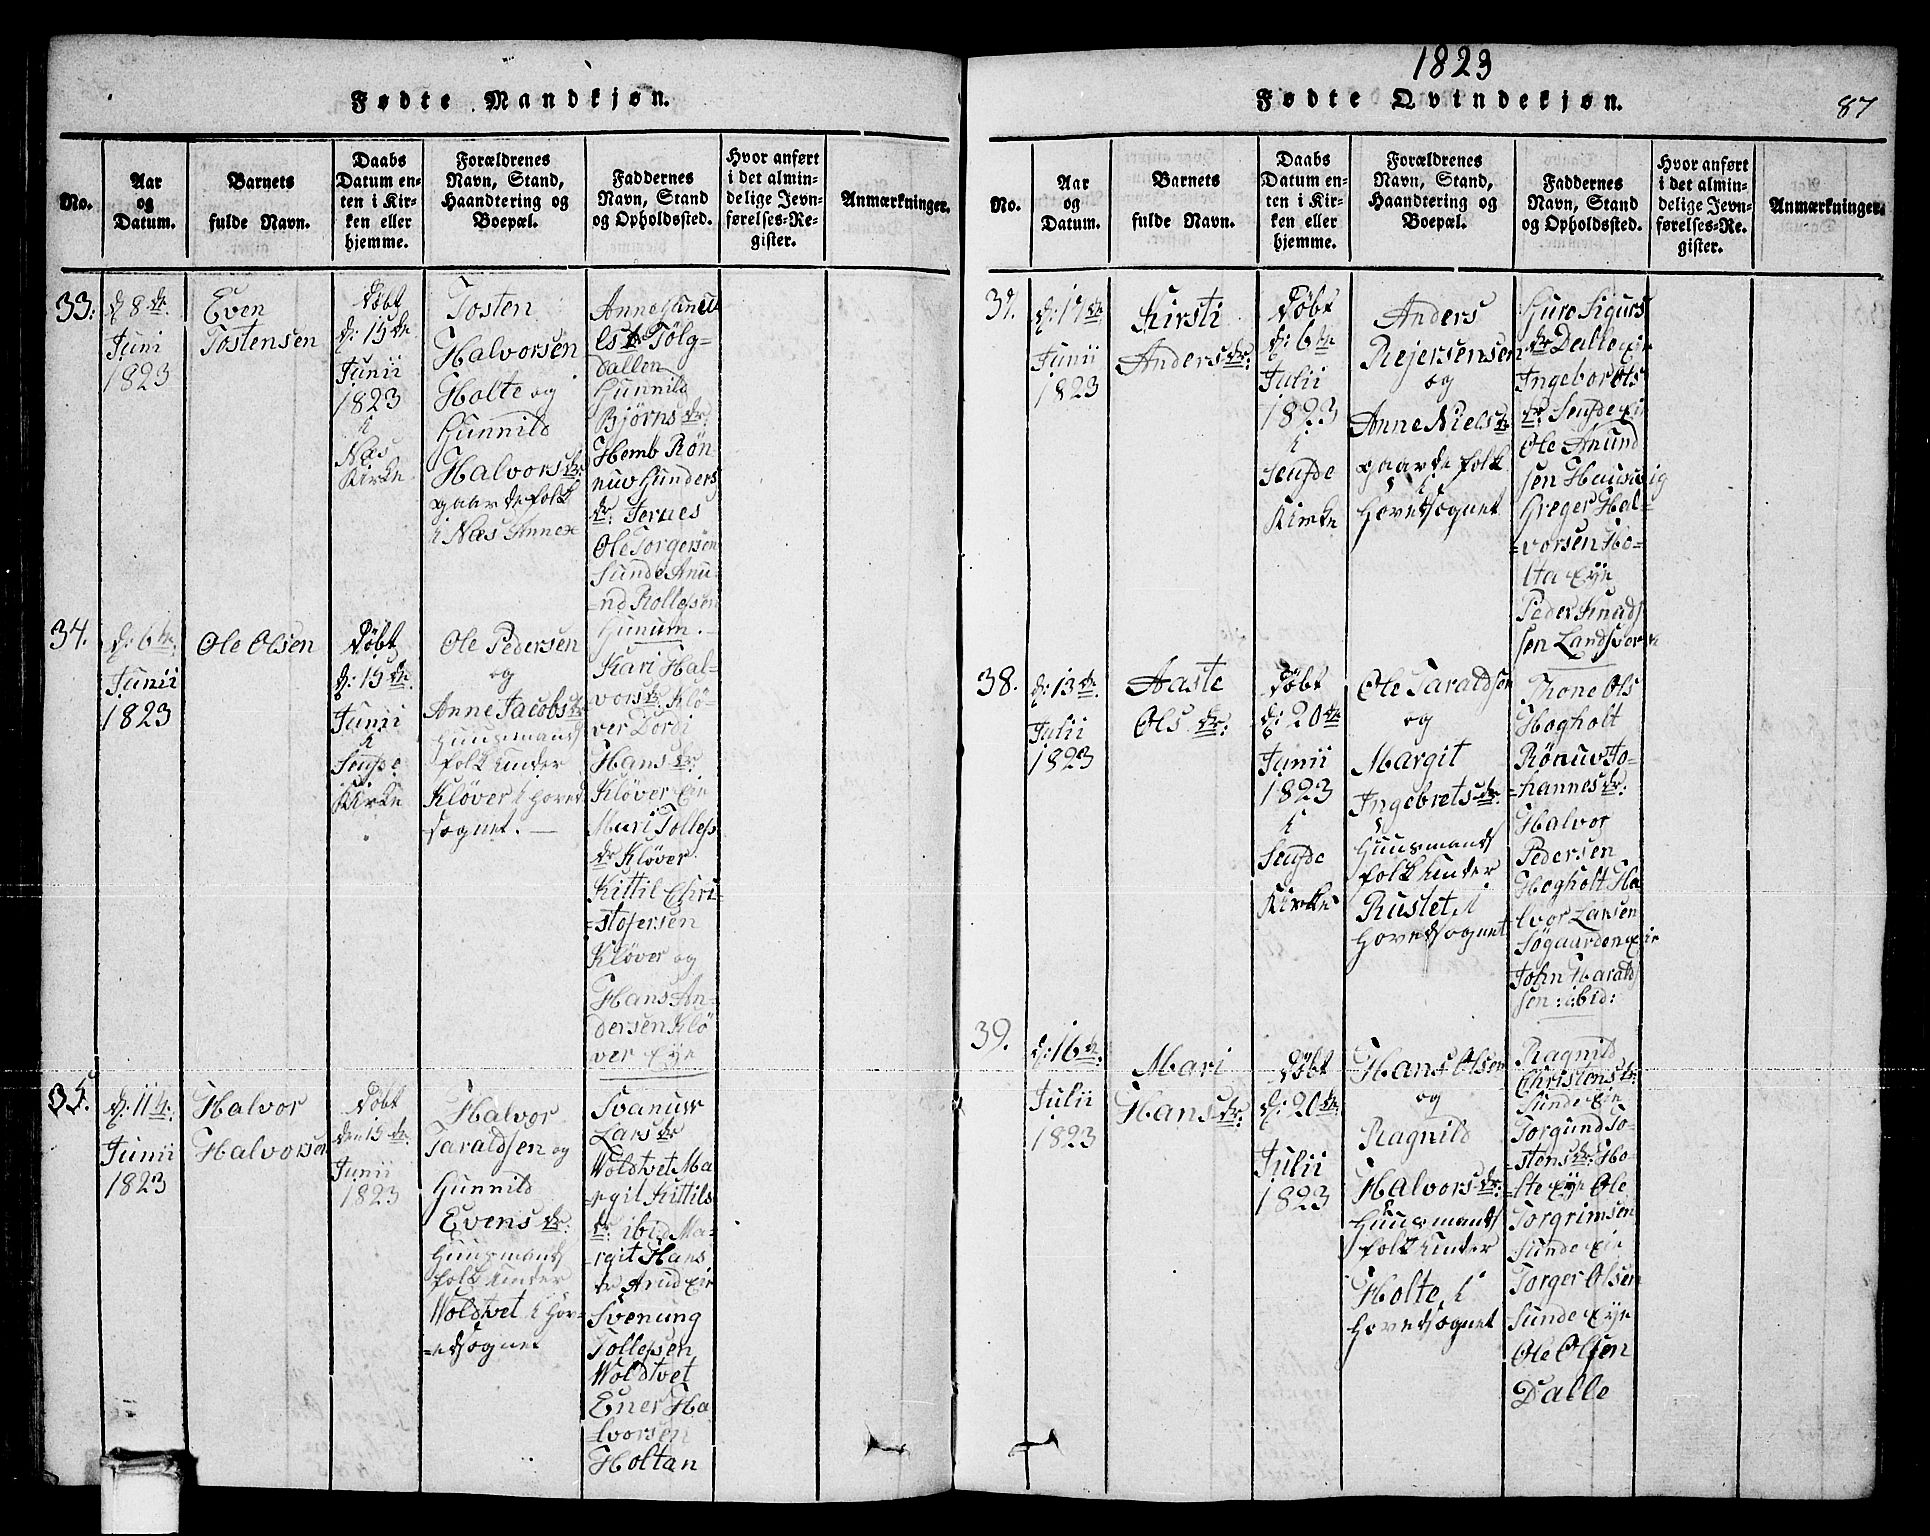 1823
87
Fødte Mandkjøn.
No.
Aar
og
Datum.
Barnets
fulde Navn.
Daabs
Datum en-
ten i Kir-
ken eller
hjemme.
Forældrenes
Navn, Stand,
Haandtering og
Boepæl.
Faddernes
Navn, Stand
og Opholdssted.
Hvor anført
i det almin-
delige Jevn-
førelses-Re-
gister.
Anmærkninger.
33.
d: 8de
Juni
1823
Even
Tostensen
Døbt
d: 15de
Junii
1823
i
Næs
Kirke
Tosten
Halvorsen
Holte og
Gunnild
Halvorsdr
gaardefolk
i Næs Annex
Anne
Gunnild
Bjørnsdr:
Hemb Røn
nuv Gunders
dr:
Ole Torgersen
Sunde Anu-
=nd Rollefsen
Gunum.
34.
d: 6te
Junii
1823
Ole Olsen
Døbt
d: 15de
Junii
i
Seufde
Kirke
Ole Pedersen
og
Anne Jacobsdr
Huusmands
folk under
Kløver i Hoved
sognet.
Kari Hal-
vorsdr. Klø-
ver Dordi
Hansdr:
Kløver Eie
Mari Tollefs
dr Kløver
Kittil Chri-
=stofersen
Kløver og
Hans An-
dersen Klø
ver Eye
35.
d: 11te
Junii
1823
Halvor
Halvorsen
Døbt
den 15de
Junii
1823
Halvor
Taraldsen og
Gunnild
Evensdr:
Huusmands
folk under
Woldtvet i Hov-
=edsognet
Larsdr
Woldtvet Ma
rgit Kittils
dr: ibid Ma-
rgit Hans
dr Arud Eie
Svenung
Tollefsen
Woldtvet
Ener Ha
lvorsen
Holtan
Fødte Qvindekjøn.
No.
Aar
og
Datum.
Barnets
fulde Navn.
Daabs
Datum en-
ten i Kir-
ken eller
hjemme.
Forældrenes
Navn, Stand,
Haandtering og
Boepæl.
Faddernes
Navn, Stand
og Opholdssted.
Hvor anført
i det almin-
delige Jevn-
førelses-Re-
gister.
Anmærkninger.
37.
d: 17de
Junii
1823
Kirsti
Andersdr:
Døbt
d: 6te
Julii
1823
i
Seufde
Kirke
Anders
Rejersensen
og
Anne Nielsdr
gaardefolk
i
Hovedsognet
Guro Sigurs
dr Dalle Eie
Ingebor Ols
dr: Seufde Eie
Ole Anund
sen Hauevig
Greger Hal-
=vorsen Ho-
lta Eye
Peder Knuds
sen Landsverk
38.
d: 13de
Julii
1823
Aaste
Ols dr:
Døbt
d: 20de
Junii
1823
i
Seufde
Kirke
Ole Taraldsen
og
Margit
Ingebretsdr.
Huusmands
folk under
Rustet i
Hovedsognet
Thone Ols
Hogholt
Rønuv Jo-
=hannesdr:
Halvor
Pedersen
Hogholt Ha
lvor Larsen
Søgaarden Eie
John Harald
sen: ibid:
39.
d: 16de
Julii
1823
Mari
Hansdr:
Døbt
d: 20de
Julii
1823
Hans Olsen
og
Ragnild
Halvorsdr:
Huusmands
folk under
Holte, i
Hovedsognet
Ragnild
Christensdr:
Sunde Eie
Torgund To-
stensdr: Ho-
lte Eye Ole
Torgrimsen
Sunde Eie
Torger Olsen
Sunde Eye
Ole Olsen
Dalle